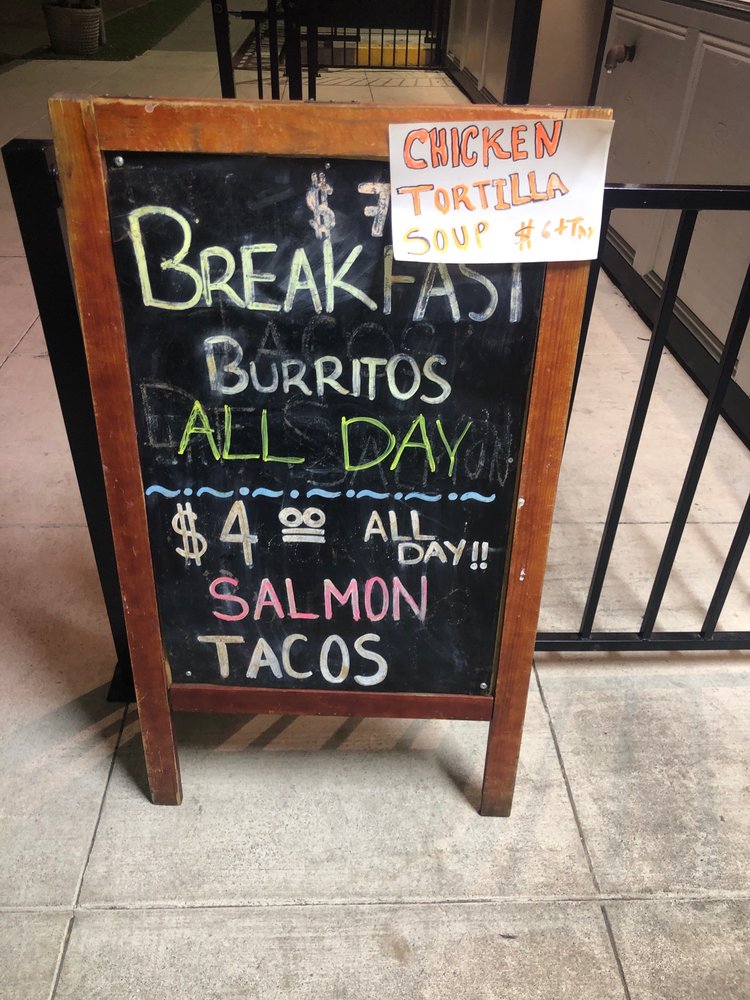 CHICKEN
TORTILLA
SOUP $6+TAX
$7
BREAKFAST
BURRITOS
ALL DAY
$4.00 ALL
DAY!!
SALMON
TACOS